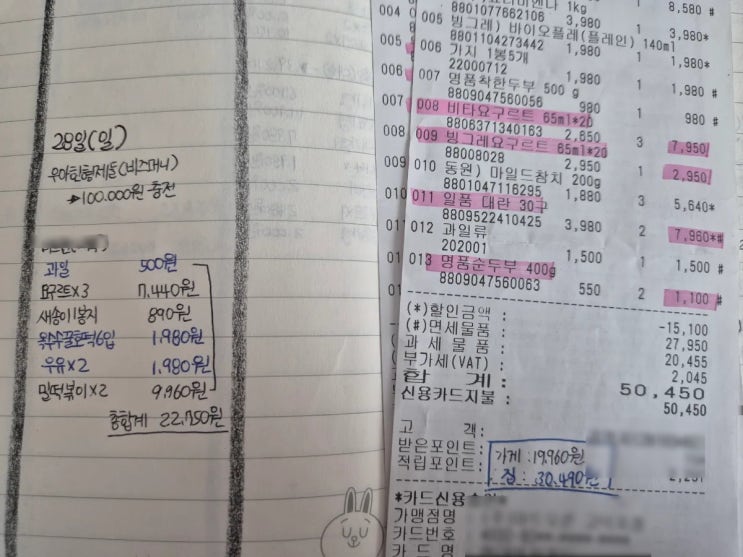 28일(일)
우아한형제들(비즈머니)
→100.000원 충전
과일 500원
요구르트×3 7.440원
새송이1봉지 890원
옥수수꿀호떡6입 1.980원
우유×2 1.980원
밀떡볶이×2 9.960원
총합계 22.750원
1kg
004 8,580 #
8801077662106 3,980 1
005 빙그레) 바이오플레(플레인) 140ml 3,980*
8801104273442 1,980 1
006 가지 1봉5개 1,980*
22000712 1,980 1
007 명품착한두부 500 g 1,980 #
8809047560056 980 1
008 비타요구르트 65ml*20 980 #
8806371340163 2,650 3
009 빙그레요구르트 65ml*20 7,950
88008028 2,950 1
010 동원) 마일드참치 200g 2,950
8801047116295 1,880 3
011 일품 대란 30구 5,640*
8809522410425 3,980 2
012 과일류 7,960*#
202001 1,500 1
013 명품순두부 400g 1,500 #
8809047560063 550 2
1,100 #
(*)할인금액 : -15,100
(#)면세물품 : 27,950
과 세 물 품 : 20,455
부가세(VAT) : 2,045
합 계 : 50,450
신용카드지불 : 50,450
고 객 :
받은포인트:
적립포인트:
가게 : 19.960원
집 : 30.490원
*카드신용
가맹점명
카드번호
카 드 명